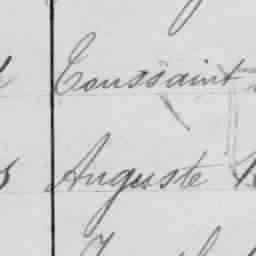 Toussaint
Auguste